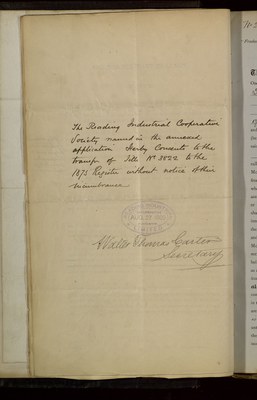 The Reading Industrial Cooperative
Society named in the annexed
application hereby Consents to the
transfer of Title No 3822 to the
1875 Register without notice of their
incumbrance
Walter Thomas Carlson
Secretary